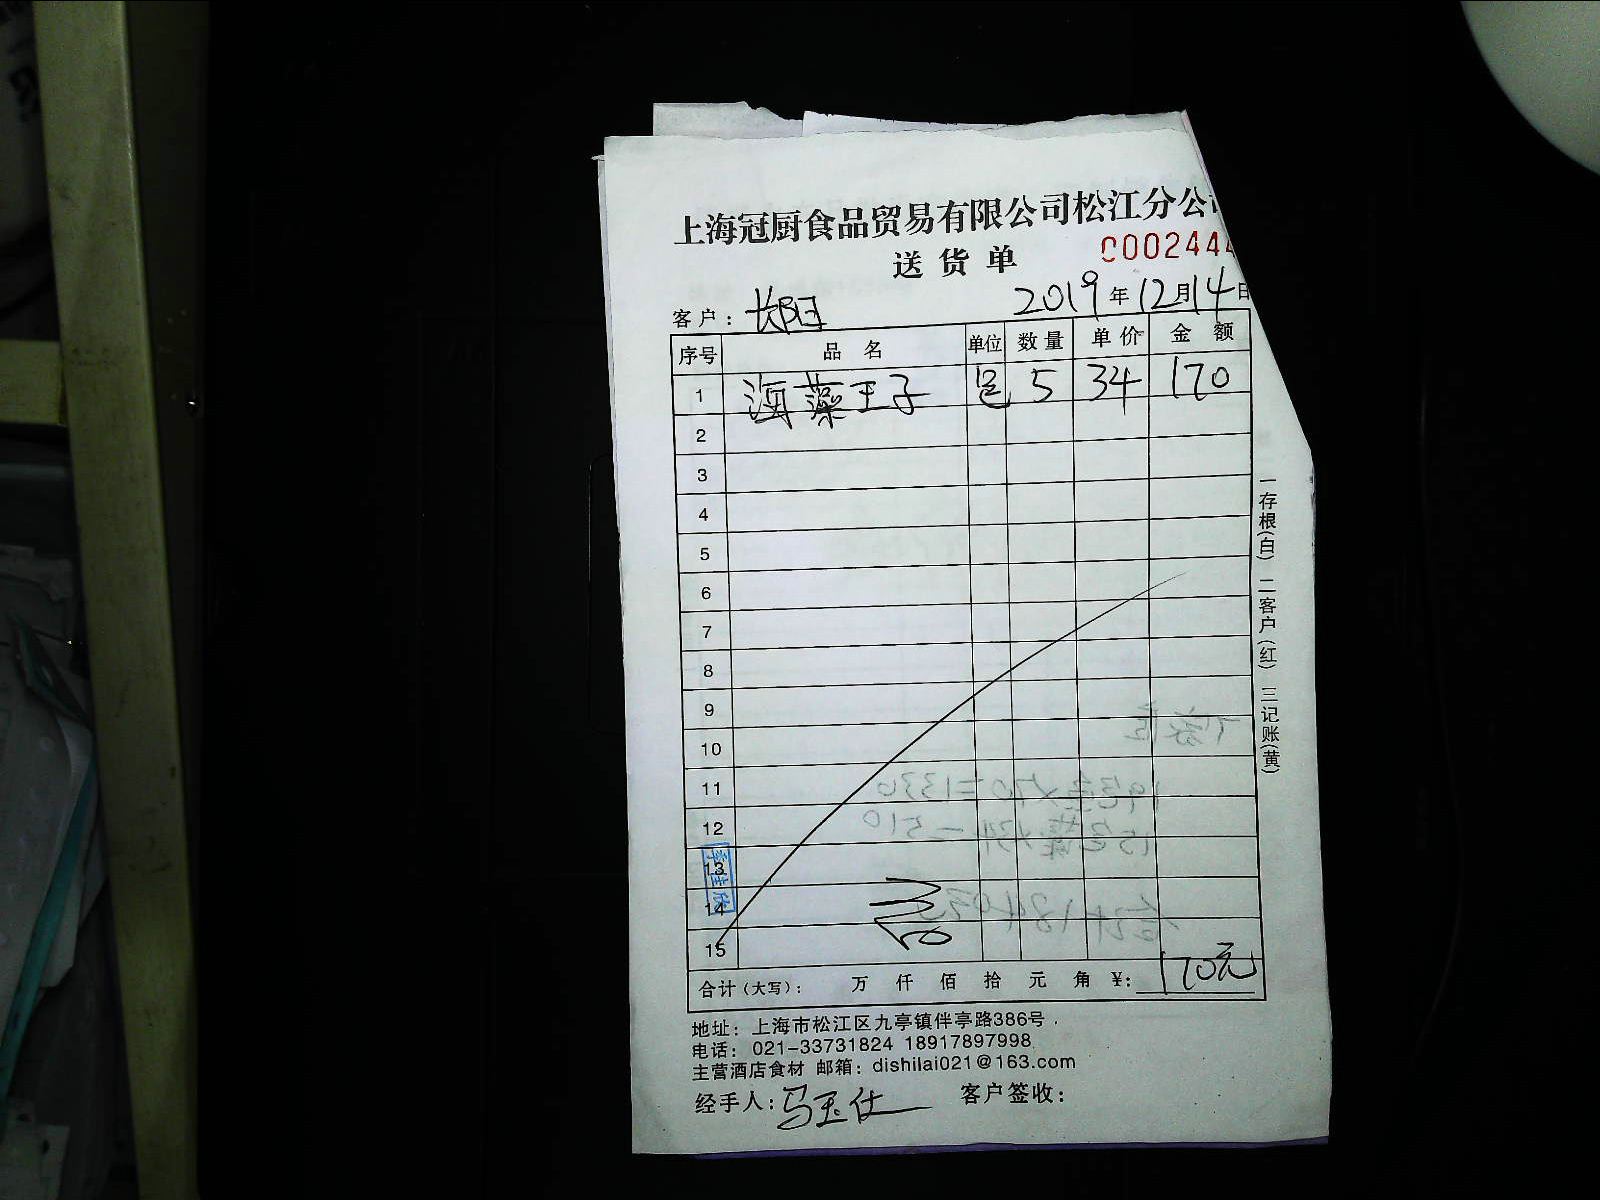 上海冠厨食品贸易有限公司松江分公
送货单 0002444
客户：长阳 2019年12月14日
序号 品名 单位 数量 单价 金额
1 海藻王子 包 5 34 170
2
3
4
5
6
7
8
9
10
11
12
13
14
15
合计（大写）： 万 仟 佰 拾 元 角 ¥：170元
一存根(白) 二客户(红) 三记账(黄)
地址：上海市松江区九亭镇伴亭路386号
电话：021-33731824 18917897998
主营酒店食材 邮箱：dishilai021@163.com
经手人：马玉仕 客户签收：